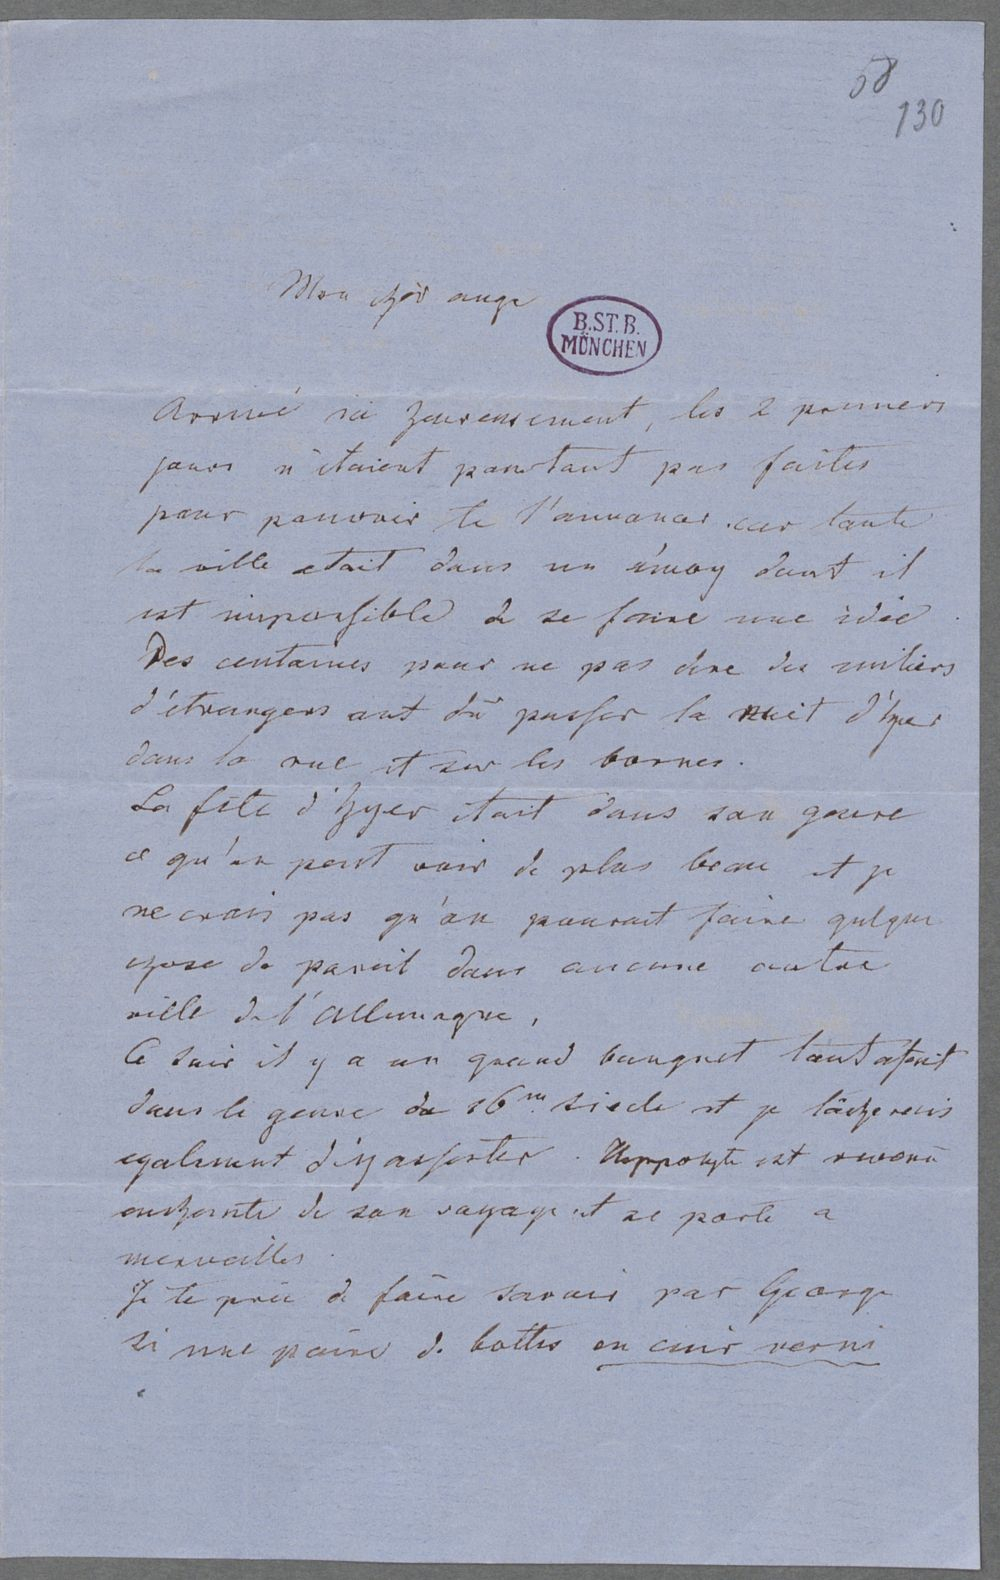 58
130
Mon chèr ange
B.ST.B.
MÜNCHEN
Arrivé ici heureusement, les 2 premiers
jours n'étaient pourtant pas faites
pour pouvoir te l'annoncer. car toute
la ville etait dans un émoy dont il
est impossible de se faire une idée.
Des centaines pour ne pas dire des miliers
d'étrangers ont dû passer la nuit d'hyer
dans la rue et sur les bornes.
La fête d'hyer était dans son genre
ce qu'on peut voir de plus beau et je
ne crois pas qu'on pourait faire quelque
chose de pareil dans aucune autre
ville de l'Allemagne.
Ce soir il y a un grand banquet tout afait
dans le genre du 16me siecle et je tâcherais
egalement d'y assister. Hyppolyte est revenu
enchanté de son voyage et se porte a
merveilles.
Je te prie de faire savoir par George
si une paire de bottes en cuir verni